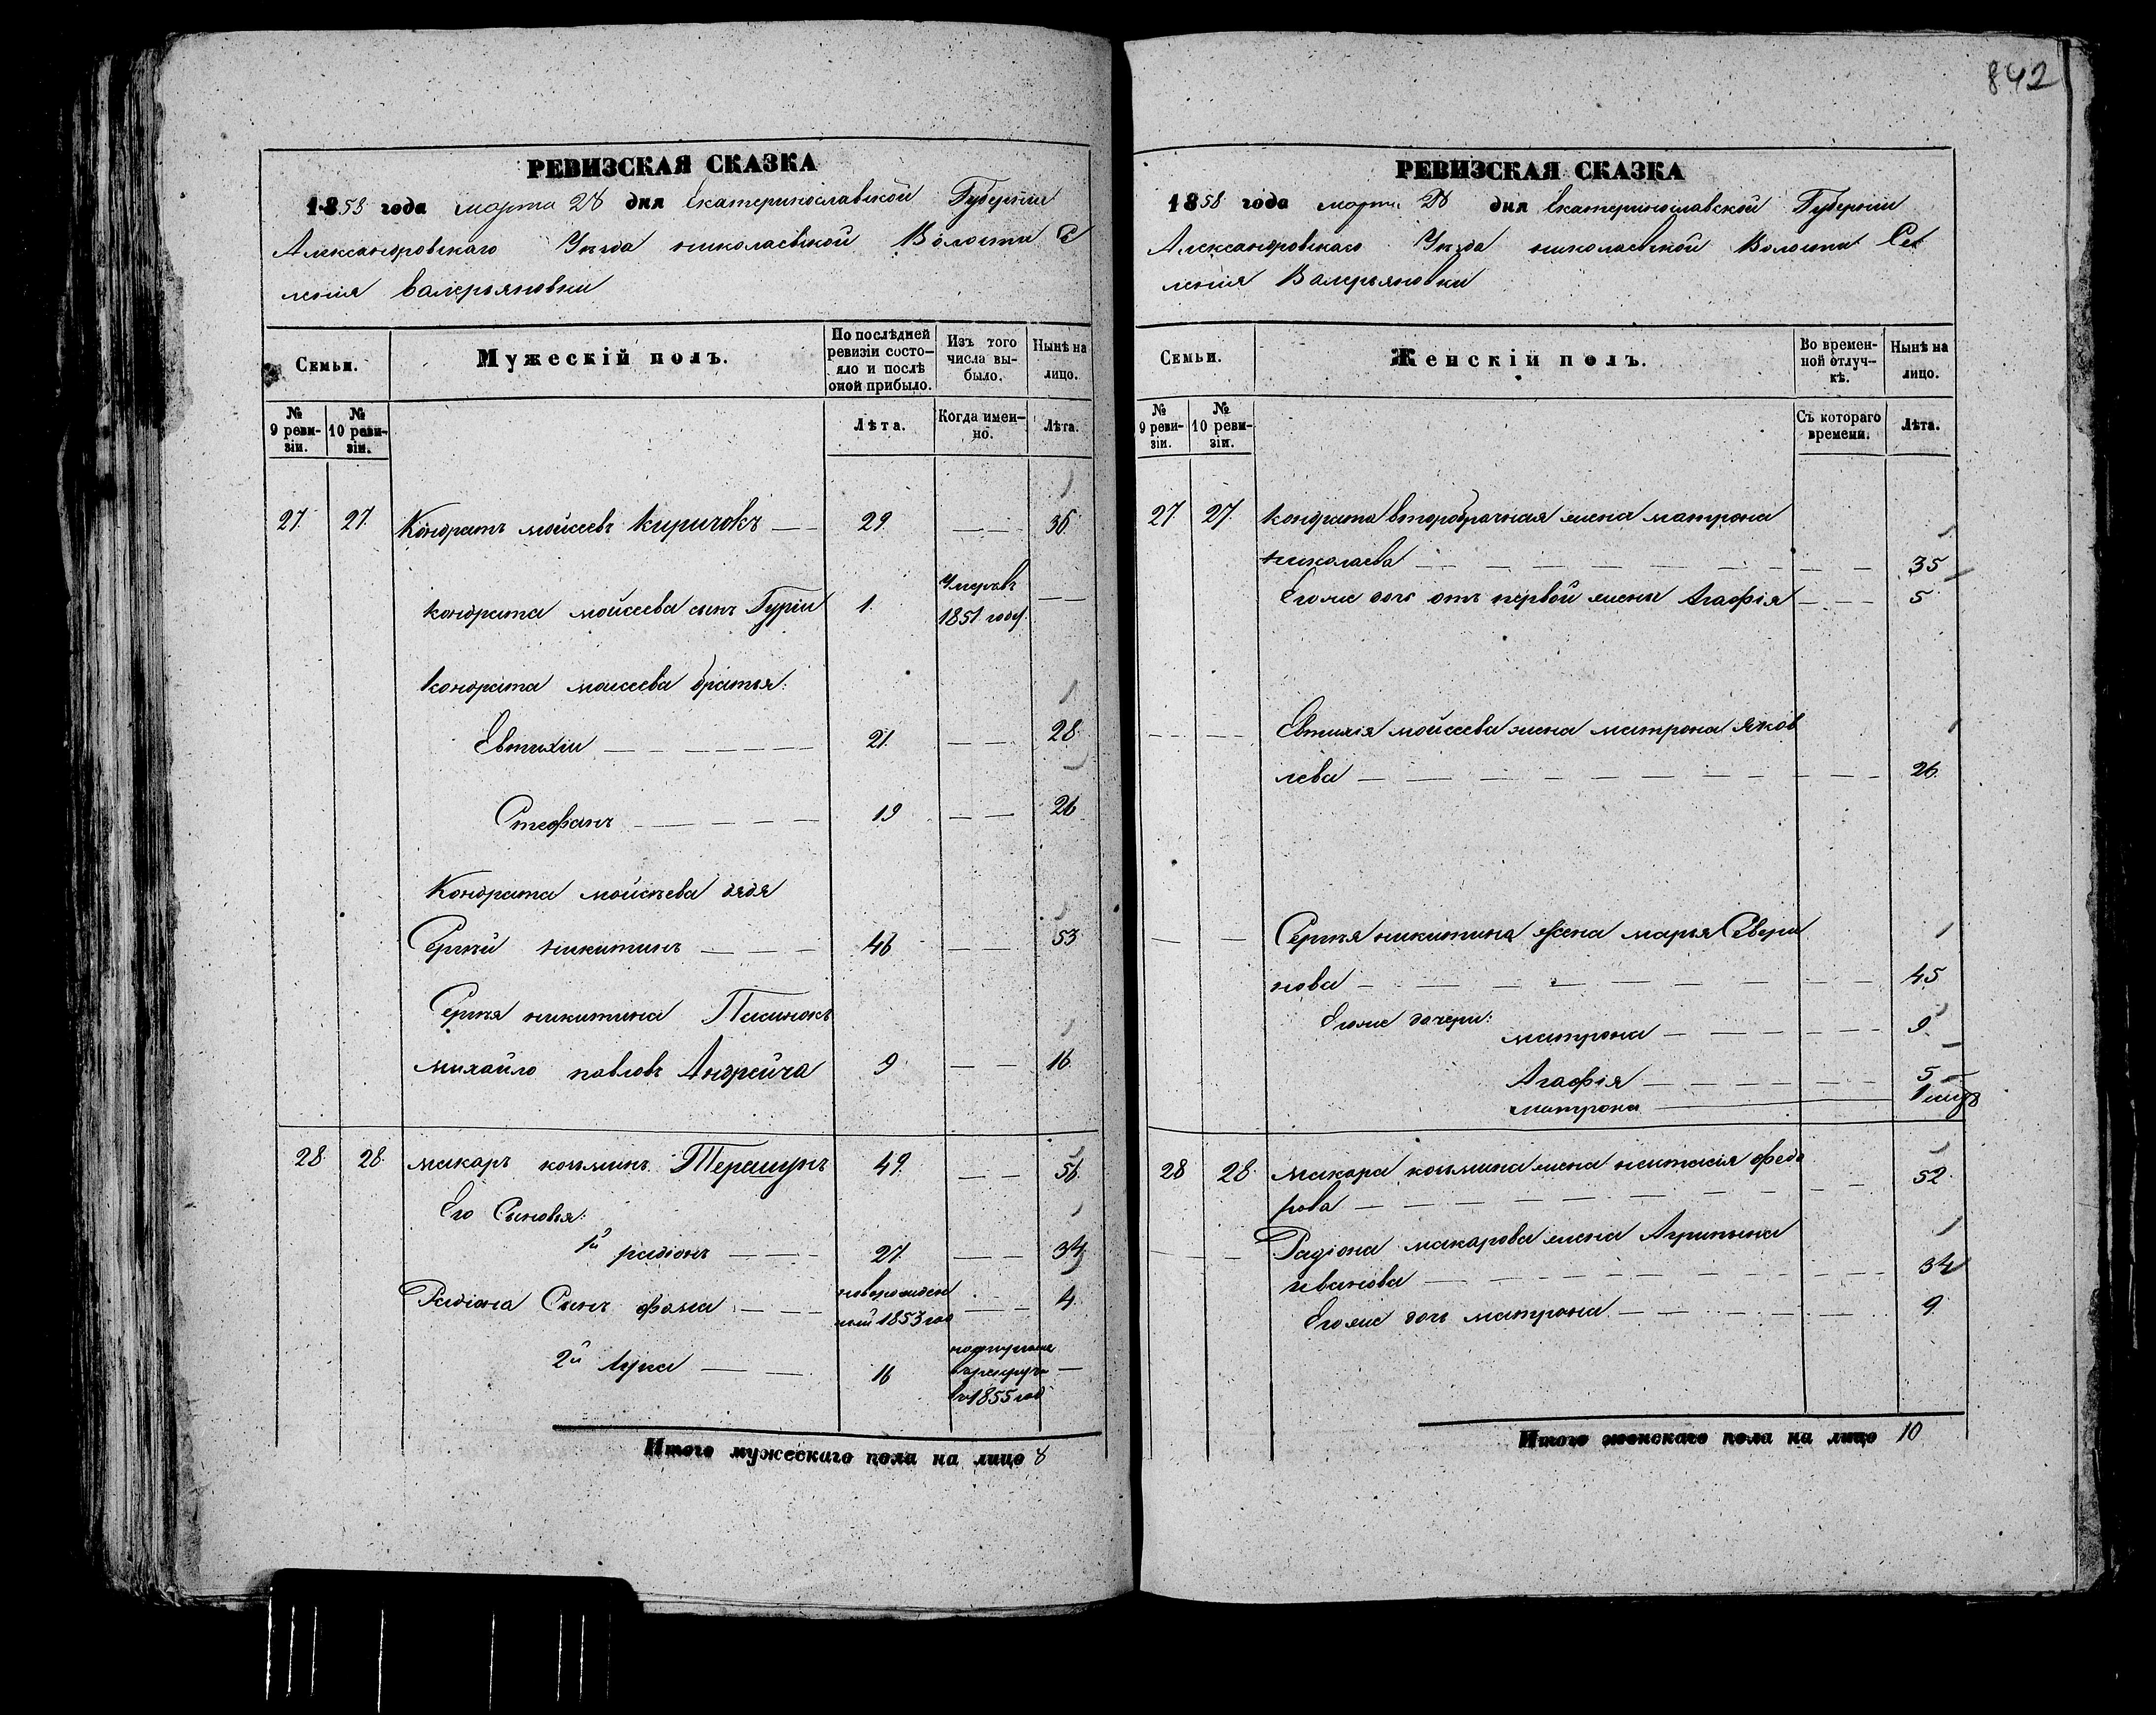 842
РЕВИЗСКАЯ СКАЗКА
1858 года марта 28 дня Екатеринославской Губернии
Александровскаго Уѣзда николаевской Волости Се
ленія Валерьяновки
Семьи.
Мужескій полъ.
По послѣдней ревизіи состо-
яло и послѣ оной прибыло.
Изъ того числа вы-
было.
Нынѣ на лицо.
№ 9 реви-
зіи.
№ 10 реви-
зіи.
Лѣта.
Когда имен-
но.
Лѣта.
27. 27. Кондратъ мойсеевъ Киричокъ — 29. — — 36.
кондрата мойсеева сынъ Гурій 1. Умеръ въ 1851 году. — —
кондрата моисеева братья:
Евтихій — — — — — 21. — — 28.
Стефанъ — — — — 19 — — 26
Кондрата мойсѣева дядя
Сергѣй никитинъ — — — 46 — — 53
Сергѣя никитина Пасинокъ
михайло павловъ Андрейча 9 — — 16.
28. 28. макаръ козьминъ Терашунъ 49. — — 56.
Его Сыновья:
1й радіонъ — — — 27. — — 34
Радіона Сынъ фома — — — новорожден
ный 1853 год — — 4.
2й лука — — 16 —
въ 1855 год
Итого мужескаго пола на лицо 8
РЕВИЗСКАЯ СКАЗКА
1858 года марта 28 дня Екатеринославской Губерніи
Александровскаго Уѣзда николаевской Волости Се
ленія Валерьяновки
Семьи.
Женскій полъ.
Во времен-
ной отлуч-
кѣ.
Нынѣ на лицо.
№ 9 реви-
зіи.
№ 10 реви-
зіи.
Съ котораго времени.
Лѣта.
27 27. кондрата второбрачная жена матрона
николаева — — — — — — — — 35
Егоже дочь отъ первой жены Агафія — — — 5
— — Евтихія мойсеева жена матрона Яков
лева — — — — — — — — 26.
— — Сергѣя никитина жена марья Севери
нова — — — — — — — — 45
Егоже дочери:
матрона — — — — 9.
Агафія — — — — 5
матрона —
28 28. Макара козьмина жена настасія федо
рова — — — — — — — — 52.
— — Радіона макарова жена Агрипина
иванова — — — — — — — — 34
Егоже дочь матрона — — — — — 9.
Итого женскаго пола на лицо 10